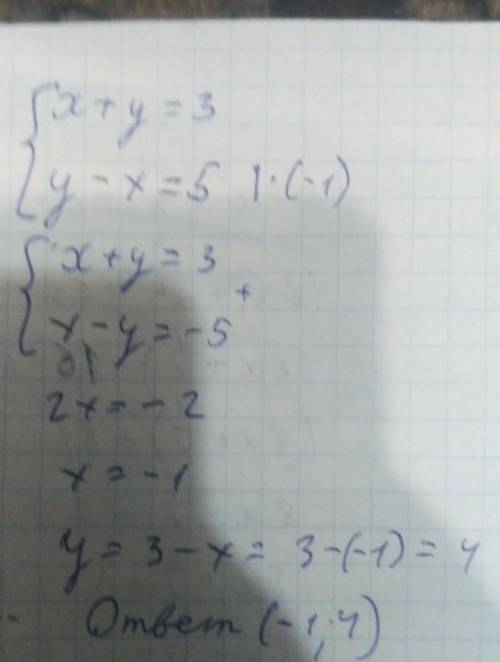 x + y = 3
y - x = 5 | · (-1)
x + y = 3
+
x - y = -5
2x = - 2
x = - 1
y = 3 - x = 3 - (-1) = 4
Ответ (-1, 4)